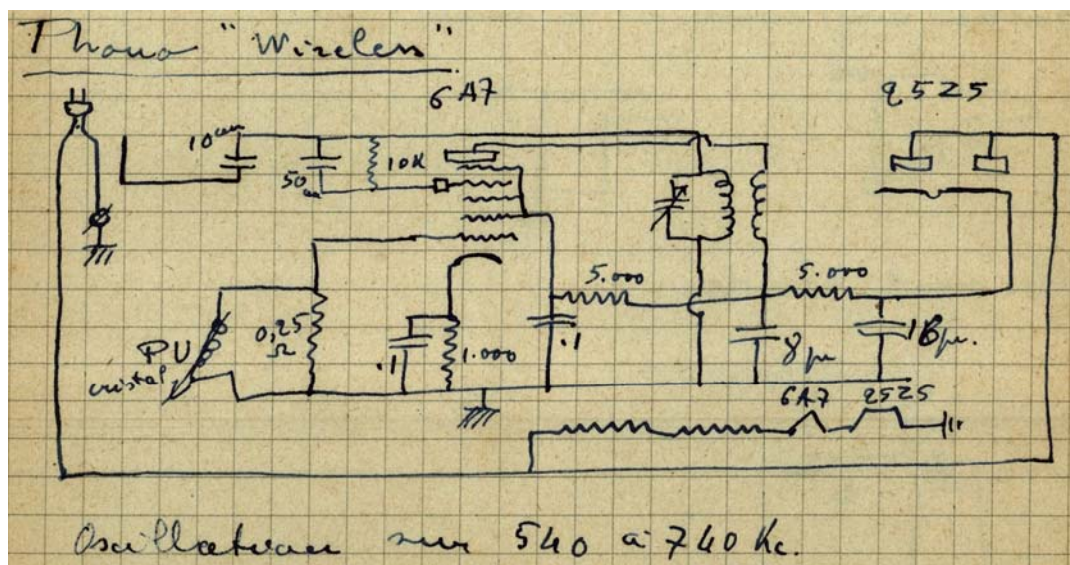 Phono "Wireless"
6A7
25Z5
10 cm
50 cm
10K
5.000
5.000
PU
cristal
0,25
Ω
.1
1.000
.1
8 µ
16 µ.
6A7 25Z5
Oscillation sur 540 à 740 Kc.